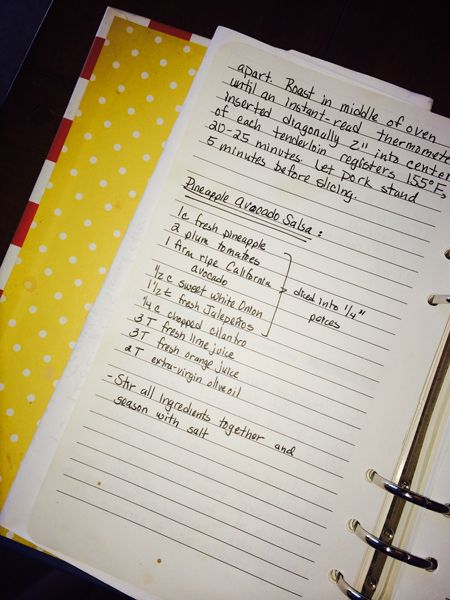 apart. Roast in middle of oven
until an instant-read thermomete
inserted diagonally 2" into center
of each tenderloin registers 155°F,
20-25 minutes. Let pork stand
5 minutes before slicing.
Pineapple Avocado Salsa:
1c fresh pineapple
2 plum tomatoes
1 firm ripe California
avocado
1/2 c sweet white Onion
1 1/2 t fresh Jalepeños
diced into 1/4"
pieces
1/4 c chopped cilantro
3 T fresh lime juice
3T fresh orange juice
2T extra-virgin olive oil
- Stir all ingredients together and
season with salt